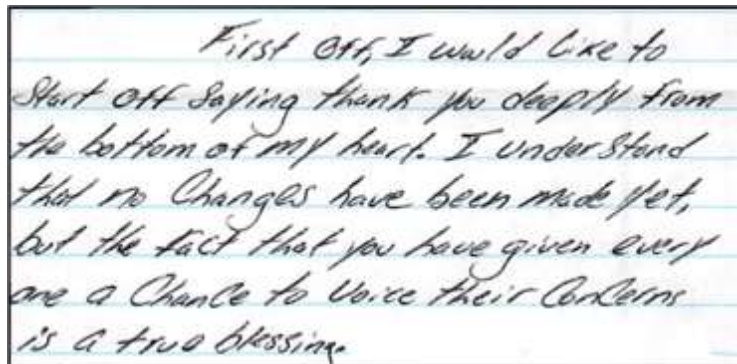 First off, I would like to
Start off Saying thank you deeply from
the bottom of my heart. I understand
that no Changes have been made yet,
but the fact that you have given every
one a Chance to voice their Concerns
is a true blessing.